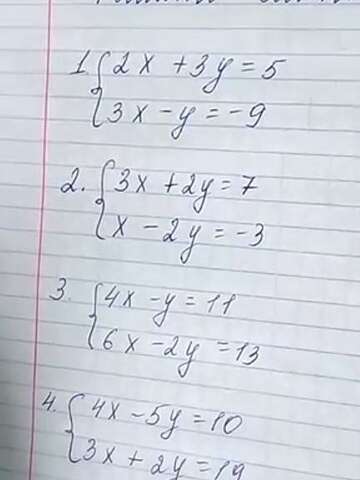 1. { 2x + 3y = 5
3x - y = -9
2. { 3x + 2y = 7
x - 2y = -3
3. { 4x - y = 11
6x - 2y = 13
4. { 4x - 5y = 10
3x + 2y = 19